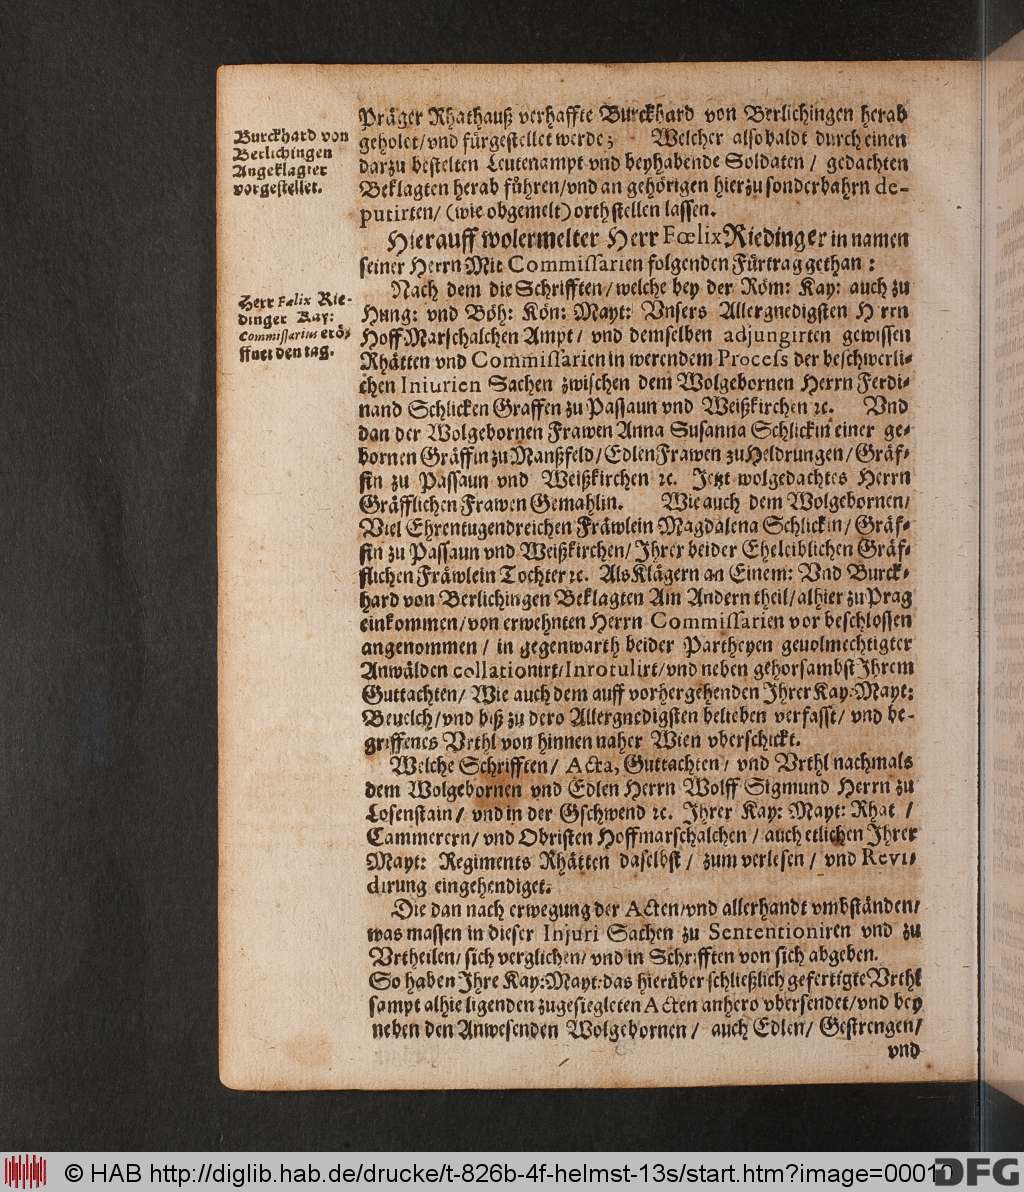 Präger Rhathauß verhaffte Burckhard von Berlichingen herab
geholet/vnd fürgestellet werde; Welcher alsobaldt durch einen
darzu bestelten Leutenampt vnd beyhabende Soldaten / gedachten
Beklagten herab führen/vnd an gehörigen hierzu sonderbahrn de-
putirten/ (wie obgemelt) orth stellen lassen.
Burckhard von
Berlichingen
Angeklagter
vorgestellet.
Hierauff wolermelter Herr Fœlix Riedinger in namen
seiner Herrn Mit Commissarien folgenden Fürtrag gethan :
Herr Fœlix Rie-
dinger Kay:
Commissarius erö-
ffnet den tag.
Nach dem die Schrifften/ welche bey der Röm: Kay: auch zu
Hung: vnd Böh: Kön: Mayt: Vnsers Allergnedigsten Herrn
Hoff Marschalchen Ampt/ vnd demselben adjungirten gewissen
Rhätten vnd Commissarien in werendem Process der beschwerli-
chen Iniurien Sachen zwischen dem Wolgebornen Herrn Ferdi-
nand Schlicken Graffen zu Passaun vnd Weißkirchen ꝛc. Vnd
dan der Wolgebornen Frawen Anna Susanna Schlickin einer ge-
bornen Gräffin zu Manßfeld/ Edlen Frawen zu Heldrungen/ Gräf-
fin zu Passaun vnd Weißkirchen ꝛc. Jetzt wolgedachtes Herrn
Gräfflichen Frawen Gemahlin. Wie auch dem Wolgebornen/
Viel Ehrentugendreichen Fräwlein Magdalena Schlickin/ Gräf-
fin zu Passaun vnd Weißkirchen/ Ihrer beider Eheleiblichen Gräf-
flichen Fräwlein Tochter ꝛc. Als Klägern an Einem: Vnd Burck-
hard von Berlichingen Beklagten Am Andern theil/ alhier zu Prag
einkommen/ von erwehnten Herrn Commissarien vor beschlossen
angenommen / in gegenwarth beider Partheyen geuolmechtigter
Anwälden collationirt/Inrotulirt/vnd neben gehorsambst Ihrem
Guttachten/ Wie auch dem auff vorhergehenden Ihrer Kay: Mayt:
Beuelch/ vnd biß zu dero Allergnedigsten belieben verfasst/ vnd be-
griffenes Vrthl von hinnen naher Wien vberschickt.
Welche Schrifften/ Acta, Guttachten/ vnd Vrthl nachmals
dem Wolgebornen vnd Edlen Herrn Wolff Sigmund Herrn zu
Losenstain/ vnd in der Gschwend ꝛc. Ihrer Kay: Mayt: Rhat /
Cammerern/ vnd Obristen Hoffmarschalchen / auch etlichen Ihrer
Mayt: Regiments Rhätten daselbst / zum verlesen / vnd Revi-
dirung eingehendiget.
Die dan nach erwegung der Acten/vnd allerhandt vmbständen/
was massen in dieser Injuri Sachen zu Sententioniren vnd zu
Vrtheilen/ sich verglichen/ vnd in Schrifften von sich abgeben.
So haben Ihre Kay: Mayt: das hierüber schließlich gefertigte Vrthl
sampt alhie ligenden zugesiegleten Acten anhero vbersendet/vnd bey
neben den Anwesenden Wolgebornen / auch Edlen/ Gestrengen/
vnd
© HAB http://diglib.hab.de/drucke/t-826b-4f-helmst-13s/start.htm?image=00010
DFG